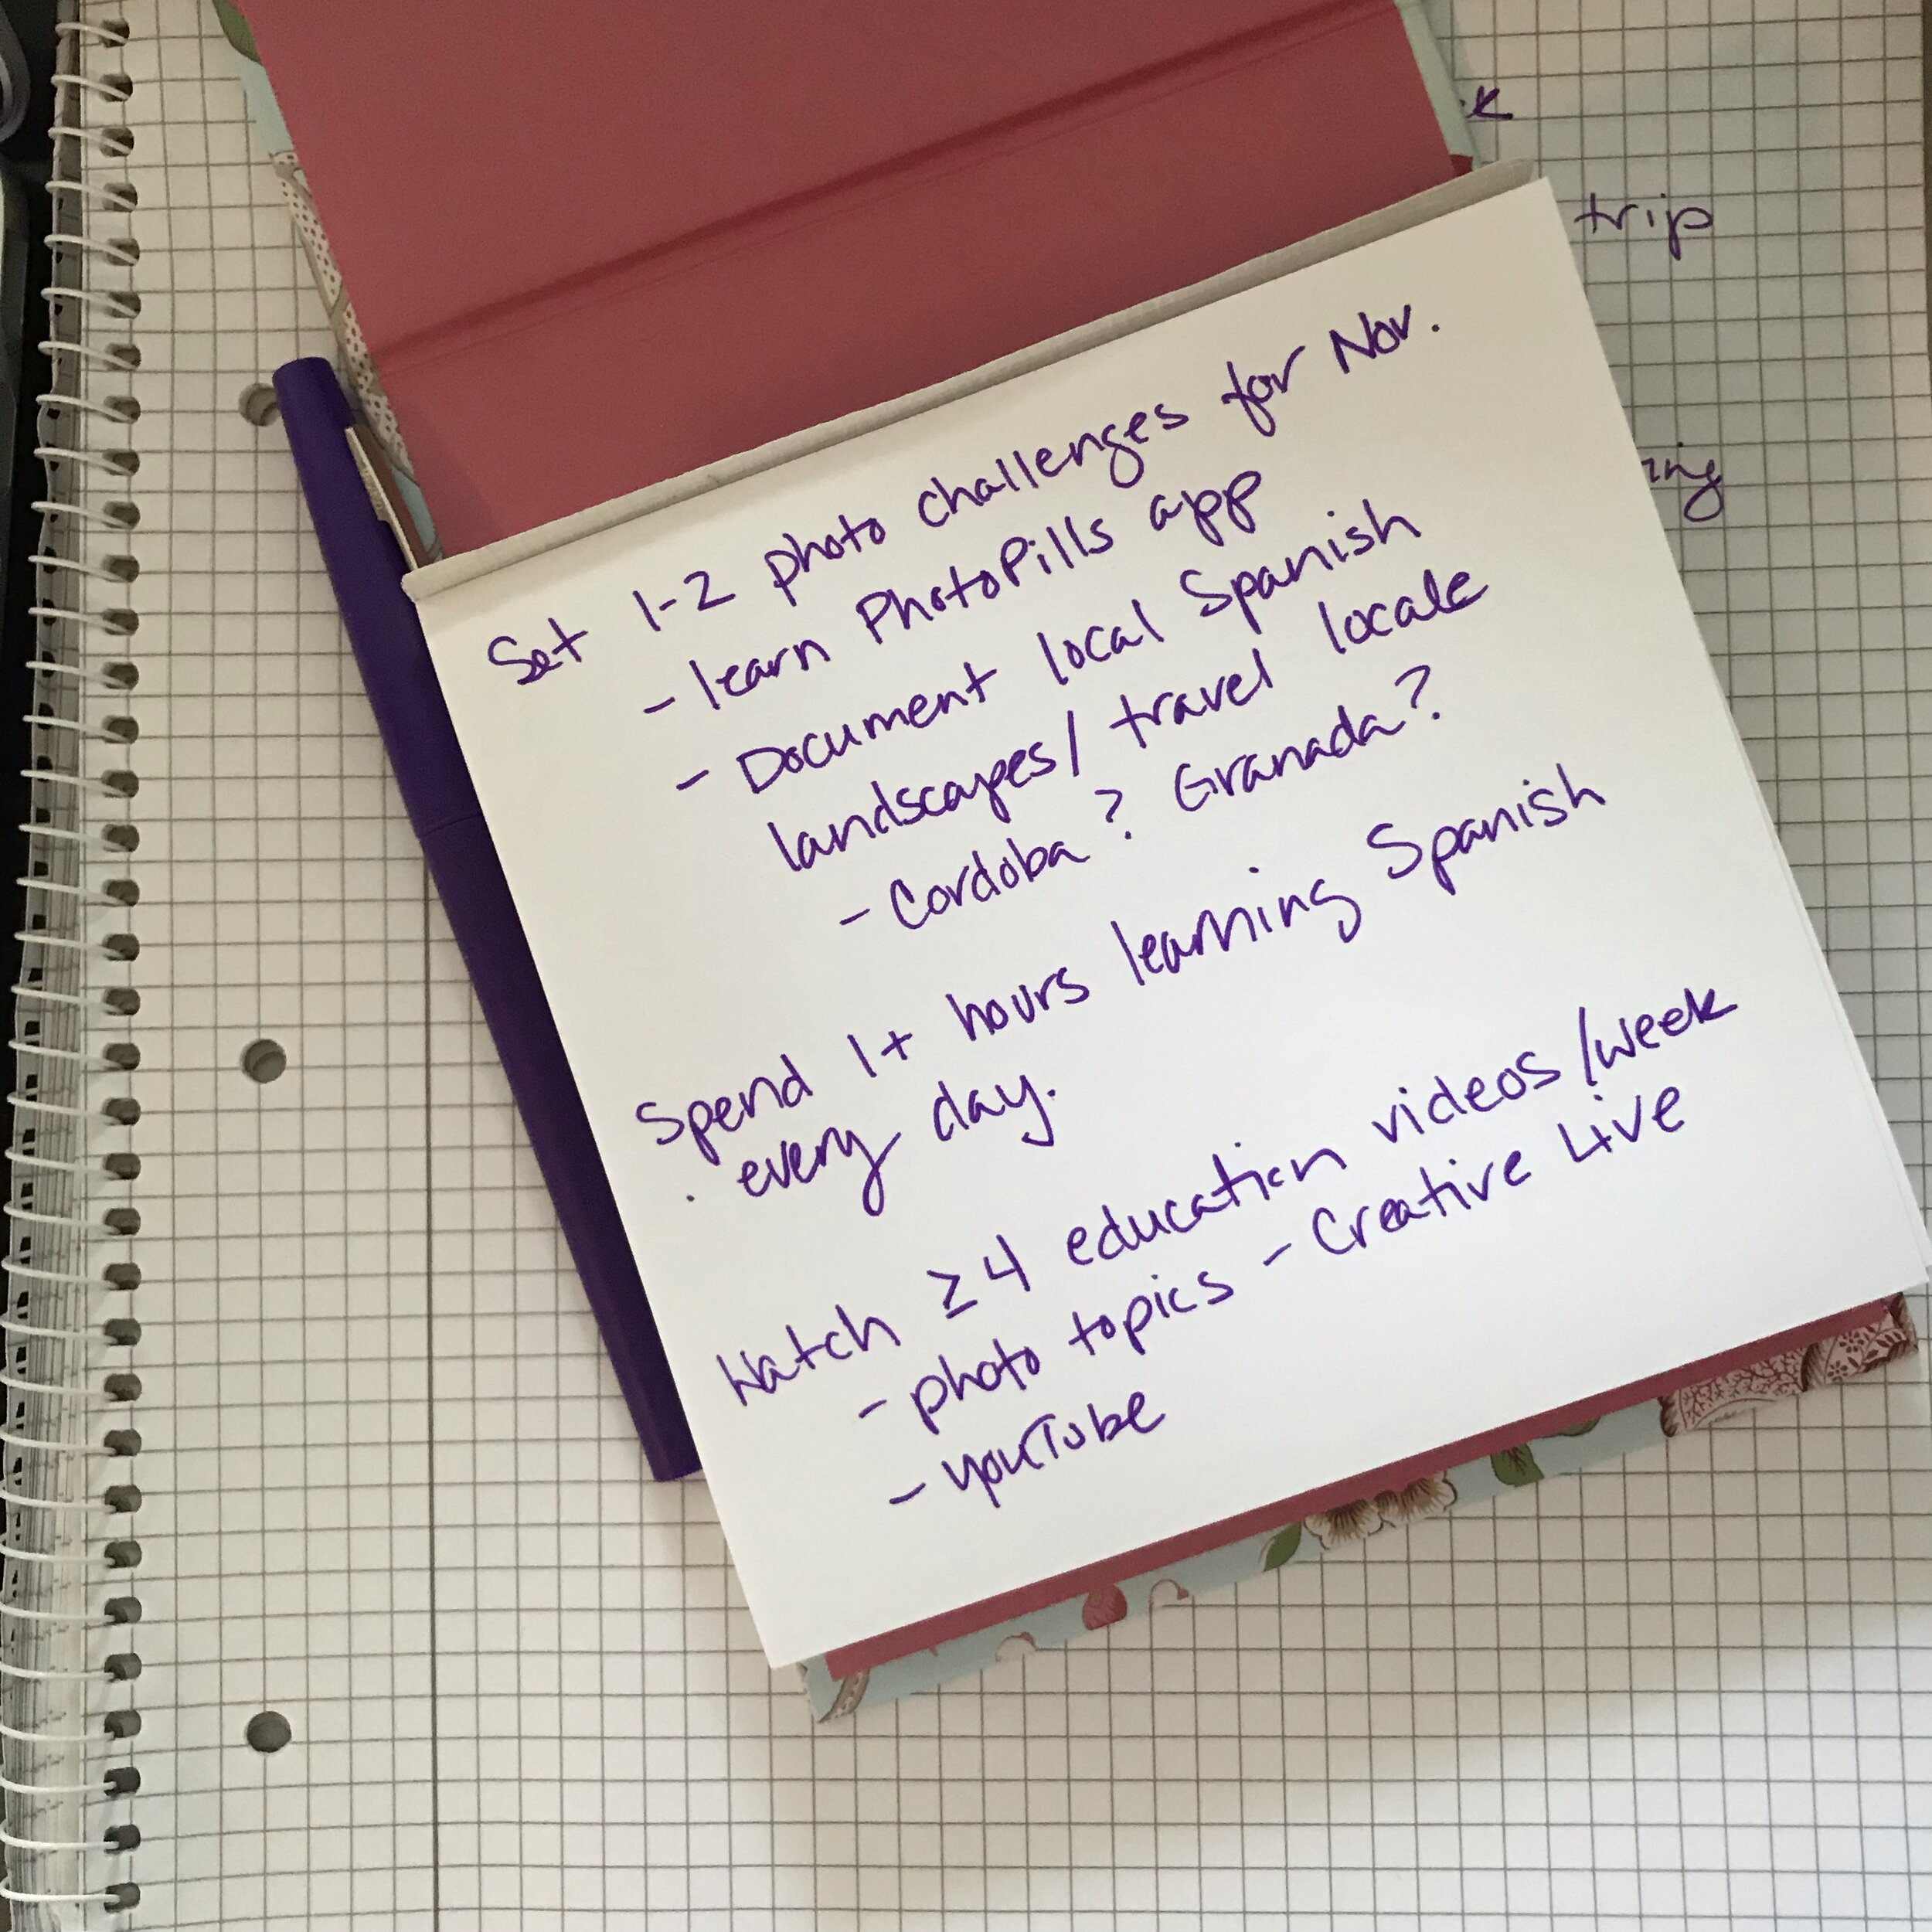 trip
Set 1-2 photo challenges for Nov.
- learn PhotoPills app
- Document local Spanish
landscapes/ travel locale
- Cordoba? Granada?
Spend 1+ hours learning Spanish
every day.
Watch ≥4 education videos/week
- photo topics - Creative Live
- YouTube